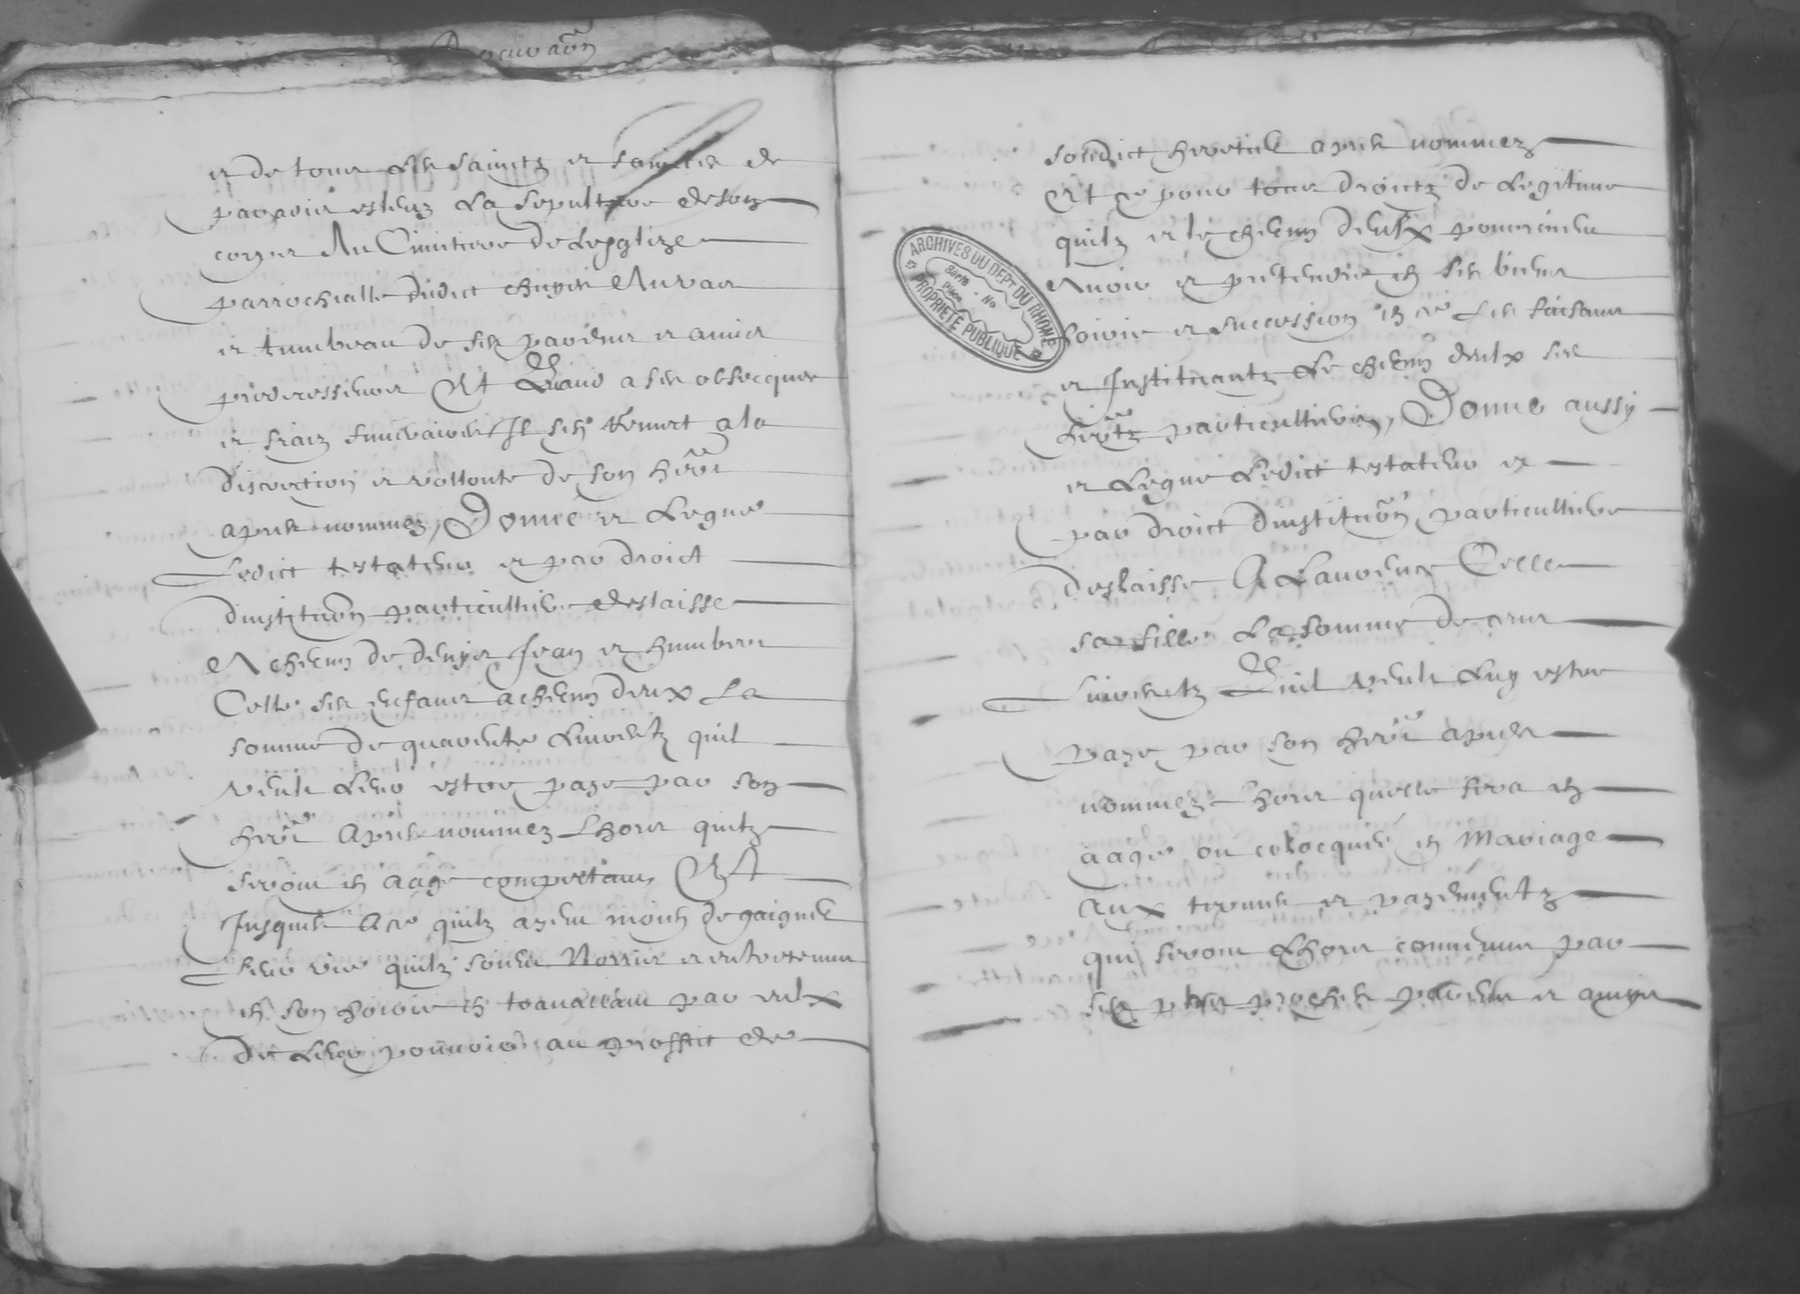 et de tous les saincts et sainctes de
paradis esleuz la sepulture de son
corps au Cimitiere de lesglize
parrochialle dudict Chuyes au vas
et tumbeau de ses parens et amis
predecesseurs Et Quand a ses obsecques
et fraiz funeraires Il sen remect a la
discrection et vollonte de son herer
apres nommez, Donne et legue
Ledict testateur et par droict
dinstituon particulliere deslaisse
A chescung de Jean et humbert
Celle ses enfans a chescung deulx La
somme de quarente livres tz quil
veult leur estre paye par son
herer apres nommez Lhors quilz
seront en aage competant, Et
Jusques a ce quilz ayent moien de gaigner
Leur vie quilz soient Norris et entretenus
en son hoirie en travaillant par eulx
de leur pouvoir au proffict de
sondict heretier apres nommez
Et ce pour tous droictz de Legitime
quilz et le chescung deulx pourroient
Avoir et pretendre en ses biens
hoirie et succession en ce Les faisant
et Instituantz Le chescung deulx ses
herers particulliers, Donne aussy
et Legue Ledict testateur et
par droict dinstituon particulliere
deslaisse A Laurence Celle
sa fille La somme de cens
Livres tz Quil veult Luy estre
Paye par son herer apres
nommez Lhors quelle sera en
aage ou colocquée en Mariage
Aux termes et payementz
qui seront Lhors convenus par
ses plus proches parens et amys
ARCHIVES DU DEPT DU RHONE
PROPRIÉTÉ PUBLIQUE
Série - No
Pièce